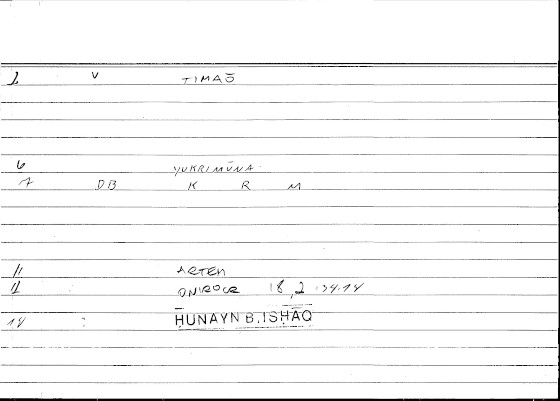 1 V TIMAŌ
6 YUKRIMŪNA
7 DB K R M
11 ARTEM
11 ONIROCR 18,2 34.14
14 : ḤUNAYN B.ISḤĀQ